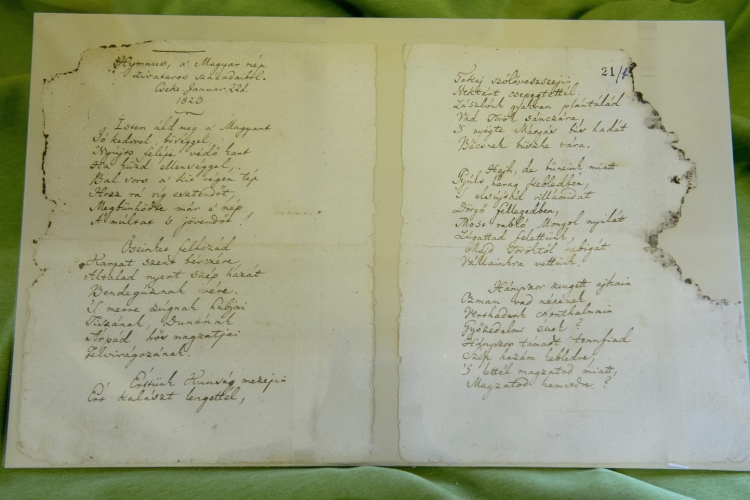 Hymnus, a' Magyar nép
zivataros századaiból.
Cseke Januar. 22d.
1823
Isten áldd meg a' Magyart
Jó kedvvel, bőséggel,
Nyújts feléje védő kart
Ha küzd ellenséggel,
Bal sors a' kit régen tép
Hozz rá víg esztendőt,
Megbűnhődte már e' nép
A' múltat 's jövendőt!
Őseinket felhozád
Kárpát szent bérczére,
Általad nyert szép hazát
Bendegúznak vére.
'S merre zúgnak habjai
Tiszának, Dunának
Árpád hős magzatjai
Felvirágozának.
Értünk Kunság mezejin
Ért kalászt lengettél,
21/
Tokaj szőlővesszején
Nektárt csepegtettél.
Zászlónk gyakran plántálád
Vad Török sánczára,
'S nyögte Mátyás bús hadát
Bécsnek büszke vára.
Hajh, de bűneink miatt
Gyúlt harag kebledben,
'S elsujtád villámidat
Dörgő fellegedben,
Most rabló Mongol nyilát
Zúgattad felettünk,
Majd Töröktől rabigát
Vállainkra vettünk.
Hányszor zengett ajkain
Ozman vad népének
Vert hadunk csonthalmain
Győzedelmi ének?
Hányszor támadt tennfiad
Szép hazám kebledre,
'S lettél magzatod miatt,
Magzatod hamvedre?